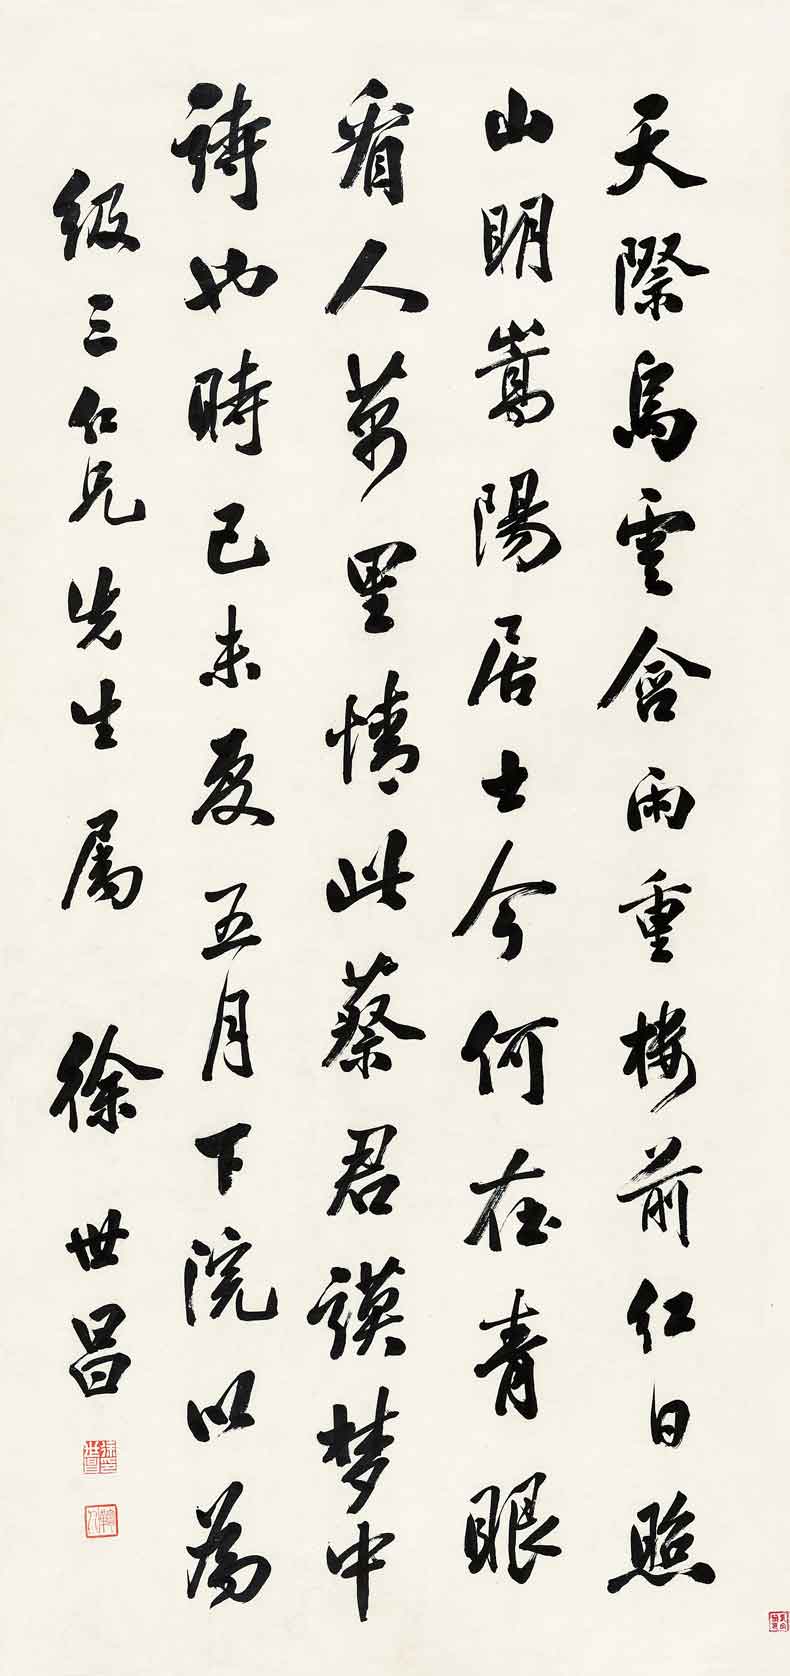 天際烏雲含雨重樓前紅日照
山明嵩陽居士今何在青眼
看人萬里情此蔡君謨夢中
詩也時己未夏五月下院以為
級三仁兄先生属 徐世昌
徐世昌印